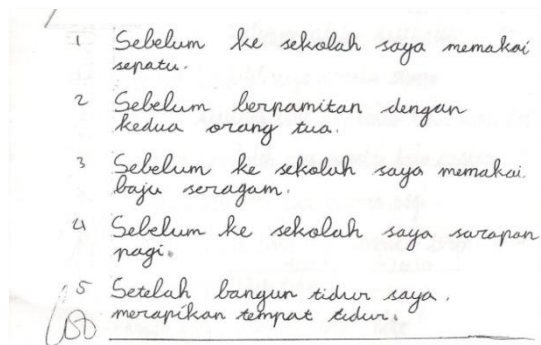 1 Sebelum ke sekolah saya memakai
sepatu.
2 Sebelum berpamitan dengan
kedua orang tua.
3 Sebelum ke sekolah saya memakai
baju seragam.
4 Sebelum ke sekolah saya sarapan
pagi.
5 Setelah bangun tidur saya.
merapikan tempat tidur.